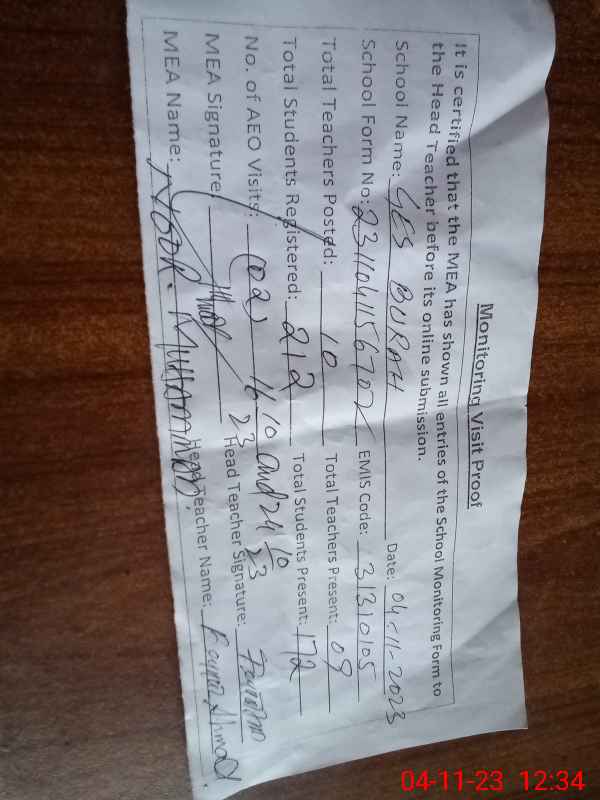 Monitoring Visit Proof
It is certified that the MEA has shown all entries of the School Monitoring Form to
the Head Teacher before its online submission.
School Name: GES BURAH Date: 04-11-2023
School Form No: EMIS Code: 31310105
Total Teachers Posted: 10 Total Teachers Present: 09
Total Students Registered: 212 Total Students Present: 172
No. of AEO Visits: (02) 16/10/23 and 24/10/23
MEA Signature: Head Teacher Signature:
MEA Name: NOOR. MUHAMMAD. Head Teacher Name: Ahmad
04-11-23 12:34